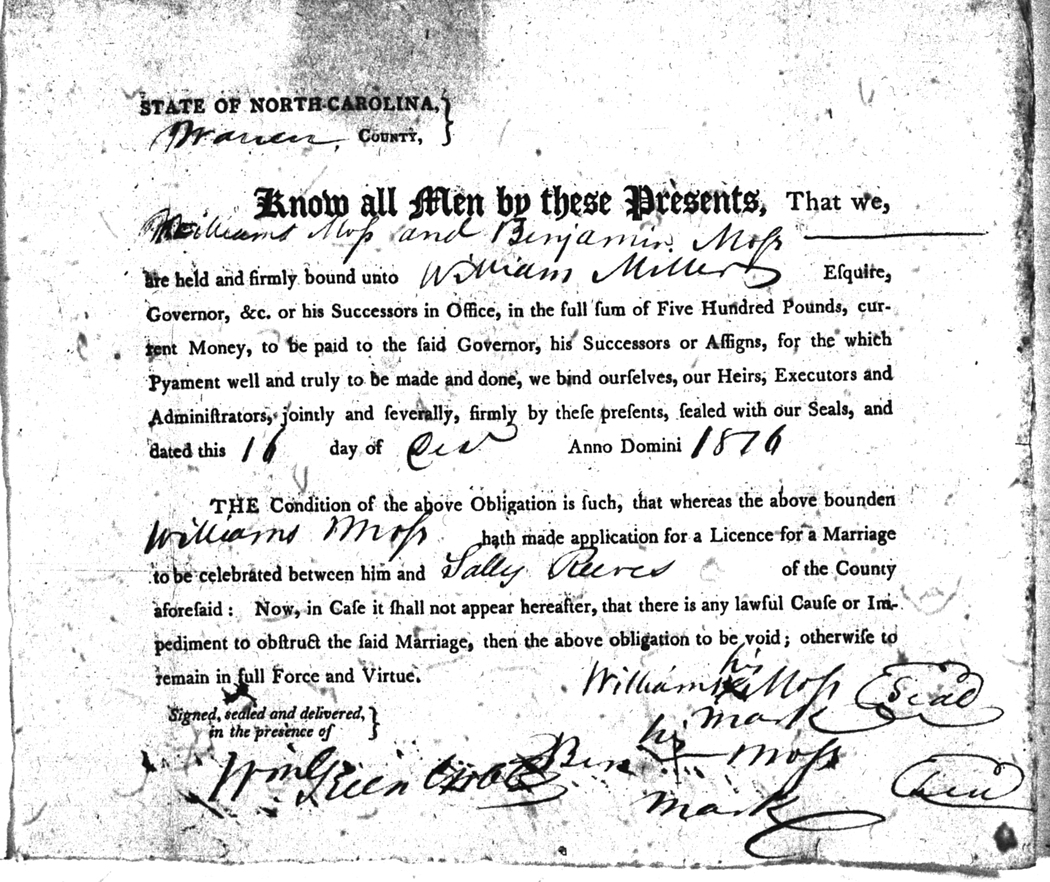 STATE OF NORTH-CAROLINA, }
Warren County, }
Know all Men by these Presents, That we,
Williams Moſs and Benjamin Moſs
are held and firmly bound unto William Miller Eſquire,
Governor, &c. or his Succeſſors in Office, in the full ſum of Five Hundred Pounds, cur-
rent Money, to be paid to the ſaid Governor, his Succeſſors or Aſſigns, for the which
Pyament well and truly to be made and done, we bind ourſelves, our Heirs, Executors and
Adminiſtrators, jointly and ſeverally, firmly by theſe preſents, ſealed with our Seals, and
dated this 16 day of Anno Domini 1816
THE Condition of the above Obligation is ſuch, that whereas the above bounden
Williams Moſs hath made application for a Licence for a Marriage
to be celebrated between him and Sally Reeves of the County
aforeſaid: Now, in Caſe it ſhall not appear hereafter, that there is any lawful Cauſe or Im-
pediment to obſtruct the ſaid Marriage, then the above obligation to be void; otherwiſe to
remain in full Force and Virtue.
his
Williams x Moſs Seal
mark
Signed, sealed and delivered, }
in the presence of }
his
Wm Green Ben + Moſs Seal
mark